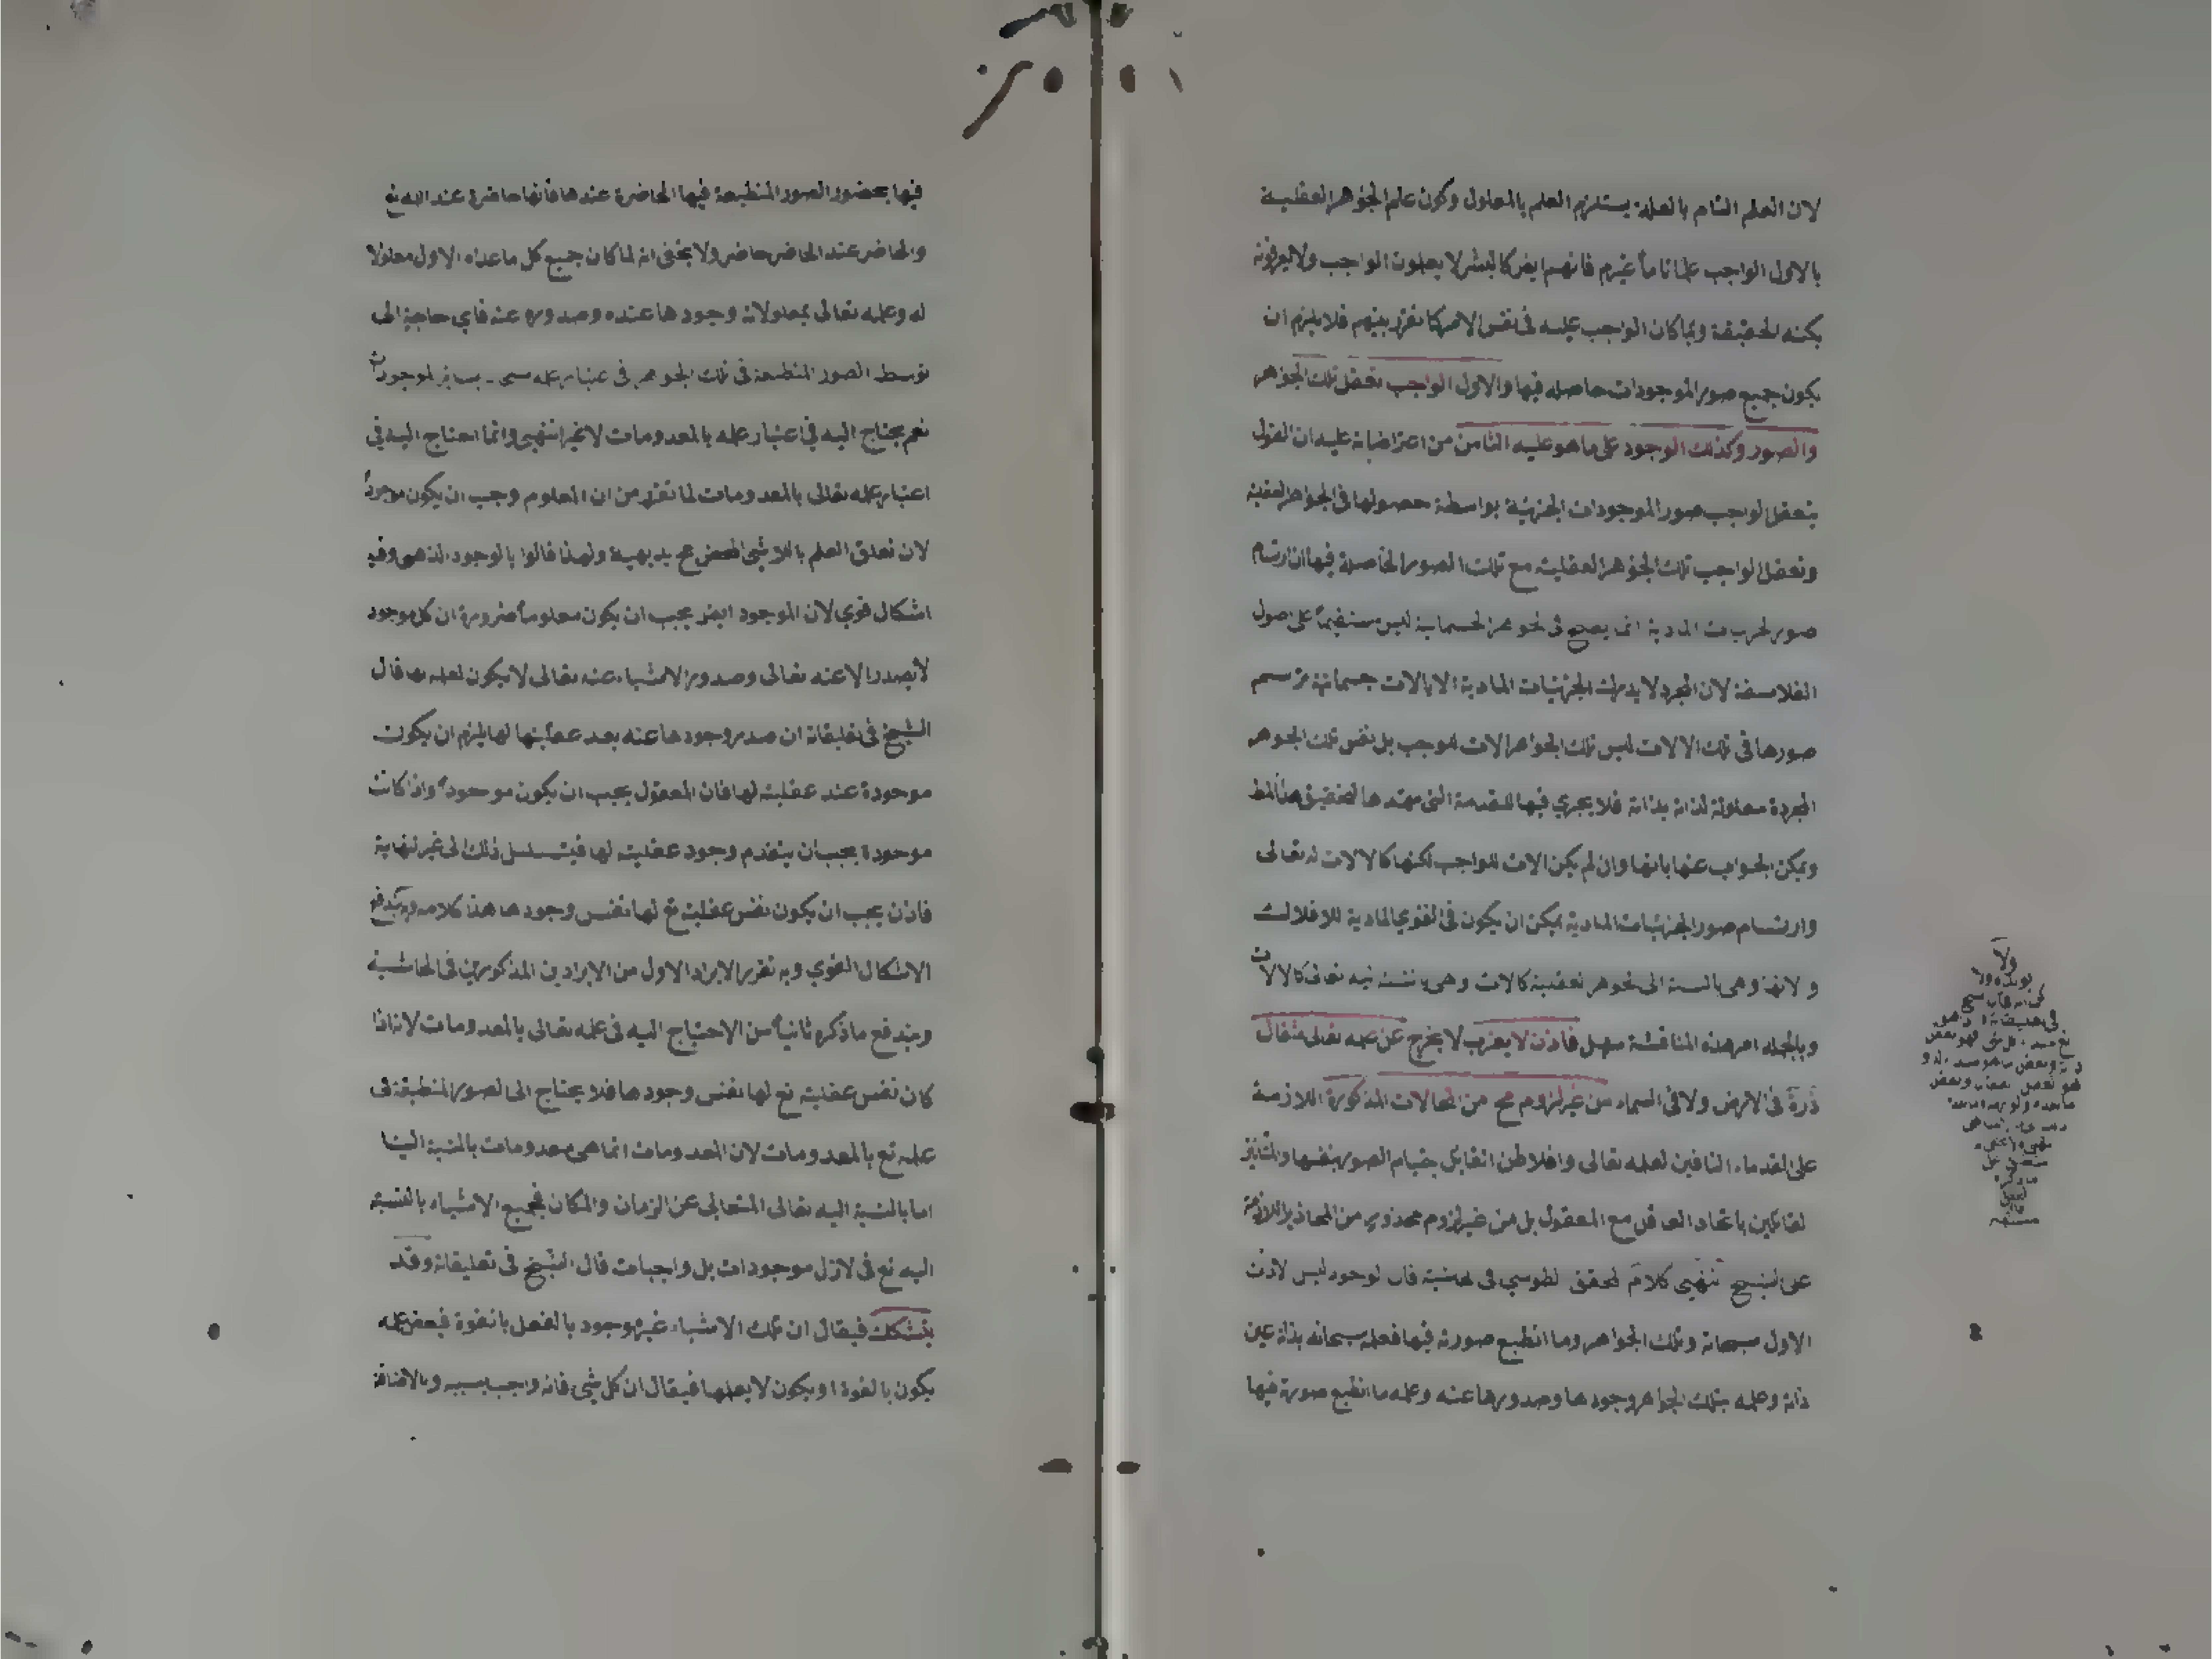 لان العلم التام بالعلة يستلزم العلم بالمعلول وكون علم الجواهر العقلية
بالاول الواجب علما تاما غيرم فانهم ايضر كالبشر لا يعلمون الواجب ولا يعرفونه
بكنه الحقيقة وبما كان الواجب عليه فى نفس الامر كما تقرر بينهم فلا يلزم ان
يكون جميع صور الموجودات حاصله فيها والاول الواجب تعقل تلك الجواهر
والصور وكذلك الوجود على ما هو عليه الثامن من اعتراضاته عليه ان القول
بتعقل الواجب صور الموجودات الجزئية بواسطة حصولها فى الجواهر العقلية
وتعقل الواجب تلك الجواهر العقلية مع تلك الصور الحاصلة فيها ان ارتسام
صور الجزئيات المادية انما يصح فى الجواهر الجسمانية ليس مستقيما على اصول
الفلاسفة لان المجرد لا يدرك الجزئيات المادية الا بالات جسمانية ترسم
صورها فى تلك الالات ليس تلك الجواهر الات للوجب بل نفس تلك الجوهر
المجردة معلولة لذاته بذاته فلا يجري فيها المقدمة التى مهدها لتحقيق هذا المط
ويمكن الجواب عنها بانها وان لم يكن الات للواجب لكنها كالالات له تعالى
وارتسام صور الجزئيات المادية يمكن ان يكون فى القوى المادية للافلاك
وهى بالنسبة الى الجواهر العقلية كالات وهى بالنسبة اليه تعالى كالالات
وبالجمله امر هذه المناقشة سهل فاذن لا يعزب لا يخرج عن علمه تعالى مثقال
ذرة فى الارض ولا فى السماء من غير لزوم مح من المحالات المذكورة اللازمة
على القدماء النافين لعلمه تعالى وافلاطن القايل بقيام الصور بنفسها والمشائين
القائلين باتحاد العاقل مع المعقول بل من غير لزوم محذور من المحاذير اللازمة
على الشيخ انتهى كلام المحقق الطوسي فى حاشية قال الوجود ليس لاذن
الاول سبحانه وتلك الجواهر وما انطبع صورته فيها فعلمه سبحانه بذاته عين
ذاته وعلمه بتلك الجواهر وجودها وصدورها عنه وعلمه ما انطبع صورته فيها
فيها بحضور الصور المنطبعة فيها الحاضرة عندها فانها حاضرة عند الله تع
والحاضر عند الحاضر حاضر ولا يخفى انه لما كان جميع كل ما عداه الاول معلولا
له وعلمه تعالى بمعلولاته وجودها عنده وصدوره عنه فاي حاجة الى
توسط الصور المنطبعة فى تلك الجواهر فى اعتبار علمه بسائر الموجودات
نعم يحتاج اليه فى اعتبار علمه بالمعدومات لا غير انتهى وانما احتاج اليه فى
اعتبار علمه تعالى بالمعدومات لما تقرر من ان المعلوم وجب ان يكون موجودا
لان تعلق العلم باللاشئ المحض مح بديهية ولهذا قالوا بالوجود الذهنى وفيه
اشكال قوي لان الموجود ايضر يجب ان يكون معلوما ضرورة ان كل موجود
لا يصدر الا عنه تعالى وصدور الاشياء عنه تعالى لا يكون لعلمه بها قال
الشيخ فى تعليقاته ان صدر وجودها عنه بعد عقليتها لها يلزم ان يكون
موجودة عند عقليته لها فان المعقول يجب ان يكون موجودا واذا كانت
موجودة يجب ان يتقدم وجود عقليته لها فيتسلسل ذلك الى غير النهاية
فاذن يجب ان يكون نفس عقليته تع لها نفس وجودها هذا كلامه وبه يندفع
الاشكال القوي وبه تقرير الايراد الاول من الايرادين المذكورين فى الحاشية
ويندفع ما ذكره ثانيا من الاحتياج اليه فى علمه تعالى بالمعدومات لانه اذا
كان نفس عقليته تع لها نفس وجودها فلا يحتاج الى الصور المنطبقة فى
علمه تع بالمعدومات لان المعدومات انما هى معدومات بالنسبة الينا
اما بالنسبة اليه تعالى المتعالى عن الزمان والمكان فجميع الاشياء بالنسبة
اليه تع فى الازل موجودات بل واجبات قال الشيخ فى تعليقاته وقد
يتشكك فيقال ان تلك الاشياء غير موجود بالفعل بالقوة فبعض علمه
يكون بالقوة او يكون لا يعلمها فيقال ان كل شئ فانه واجب بسببه وبالاضافة